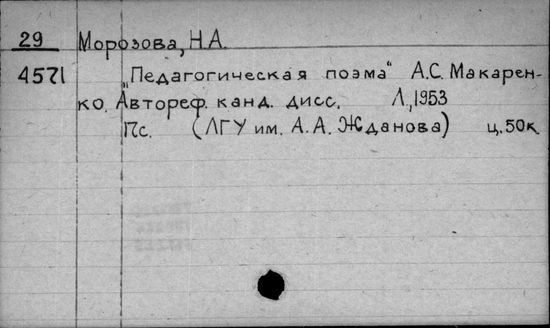 29 Морозова, Н.А.
4571 „Педагогическая поэма“ А.С. Макарен-
ко. Автореф. канд. дисс. Л., 1953
17с. (ЛГУ им. А.А. Жданова) ц. 50к.